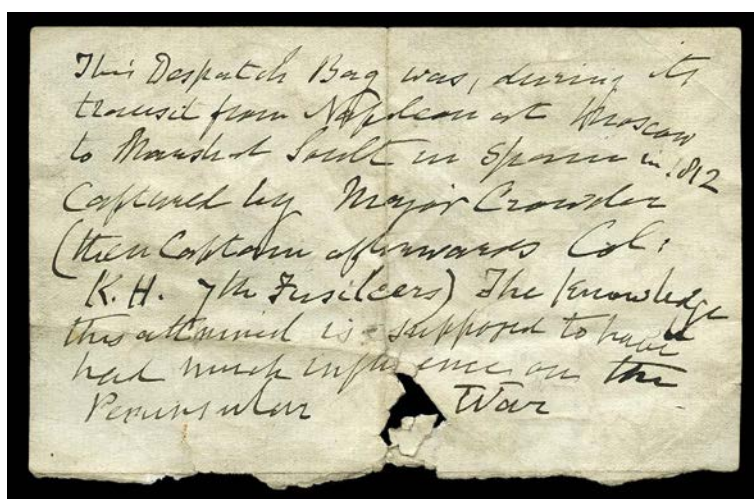 This Despatch Bag was, during its
transit from Napoleon at Moscow
to Marshal Soult in Spain in 1812
Captured by Major Crowder
(then Captain afterwards Col:
K.H. 7th Fusileers) The knowledge
thus attained is supposed to have
had much influence on the
Peninsular War